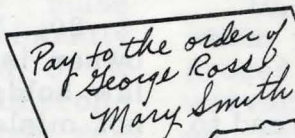 Pay to the order of
George Ross
Mary Smith